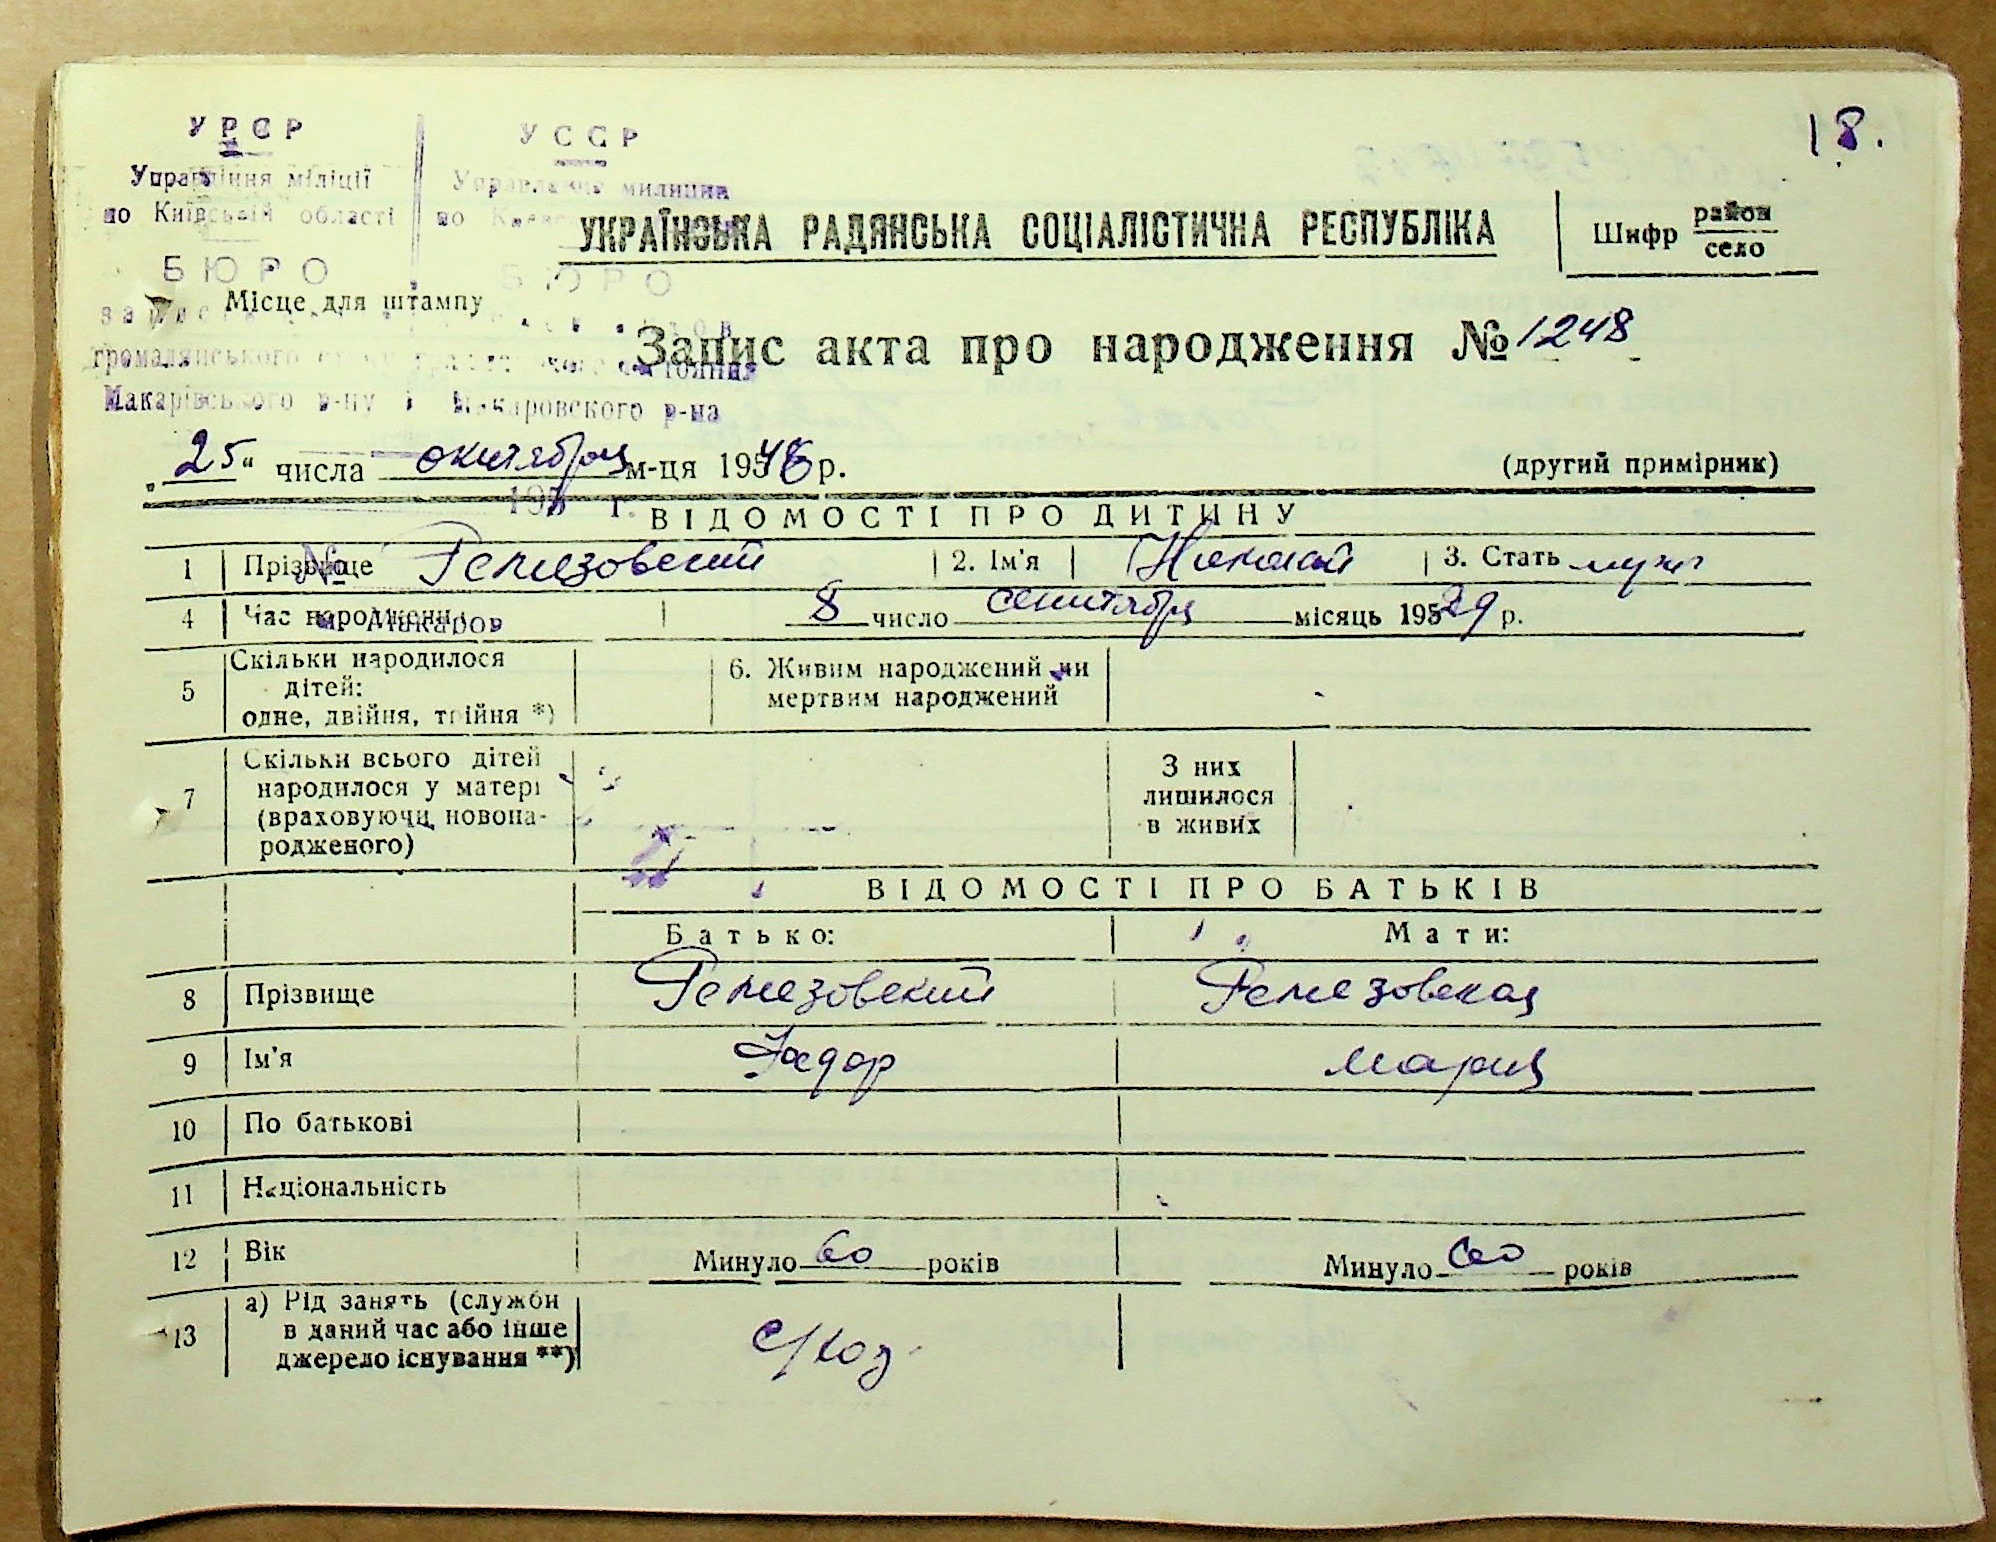 18.
УРСР УССР
Управління міліції Управление милиции
по Київській області по
УКРАЇНСЬКА РАДЯНСЬКА СОЦІАЛІСТИЧНА РЕСПУБЛІКА
Шифр район
село
БЮРО БЮРО
Місце для штампу
громадянського состояния
Запис акта про народження № 1248
Макарівського р-ну Макаровского р-на
"25" числа октября м-ця 1948 р.
(другий примірник)
195 г.
ВІДОМОСТІ ПРО ДИТИНУ
№
1 Прізвище Ремезовский 2. Ім'я Николай 3. Стать муж
4 Час народження 8 число сентября місяць 1929 р.
м. Макаров
5 Скільки народилося
дітей:
одне, двійня, трійня *)
6. Живим народжений чи
мертвим народжений
7 Скільки всього дітей
народилося у матері
(враховуючи новона-
родженого)
З них
лишилося
в живих
ВІДОМОСТІ ПРО БАТЬКІВ
Батько: Мати:
8 Прізвище Ремезовский Ремезовская
9 Ім'я Федор Мария
10 По батькові
11 Національність
12 Вік Минуло 60 років Минуло 60 років
13 а) Рід занять (служби
в даний час або інше
джерело існування **)
с/хоз